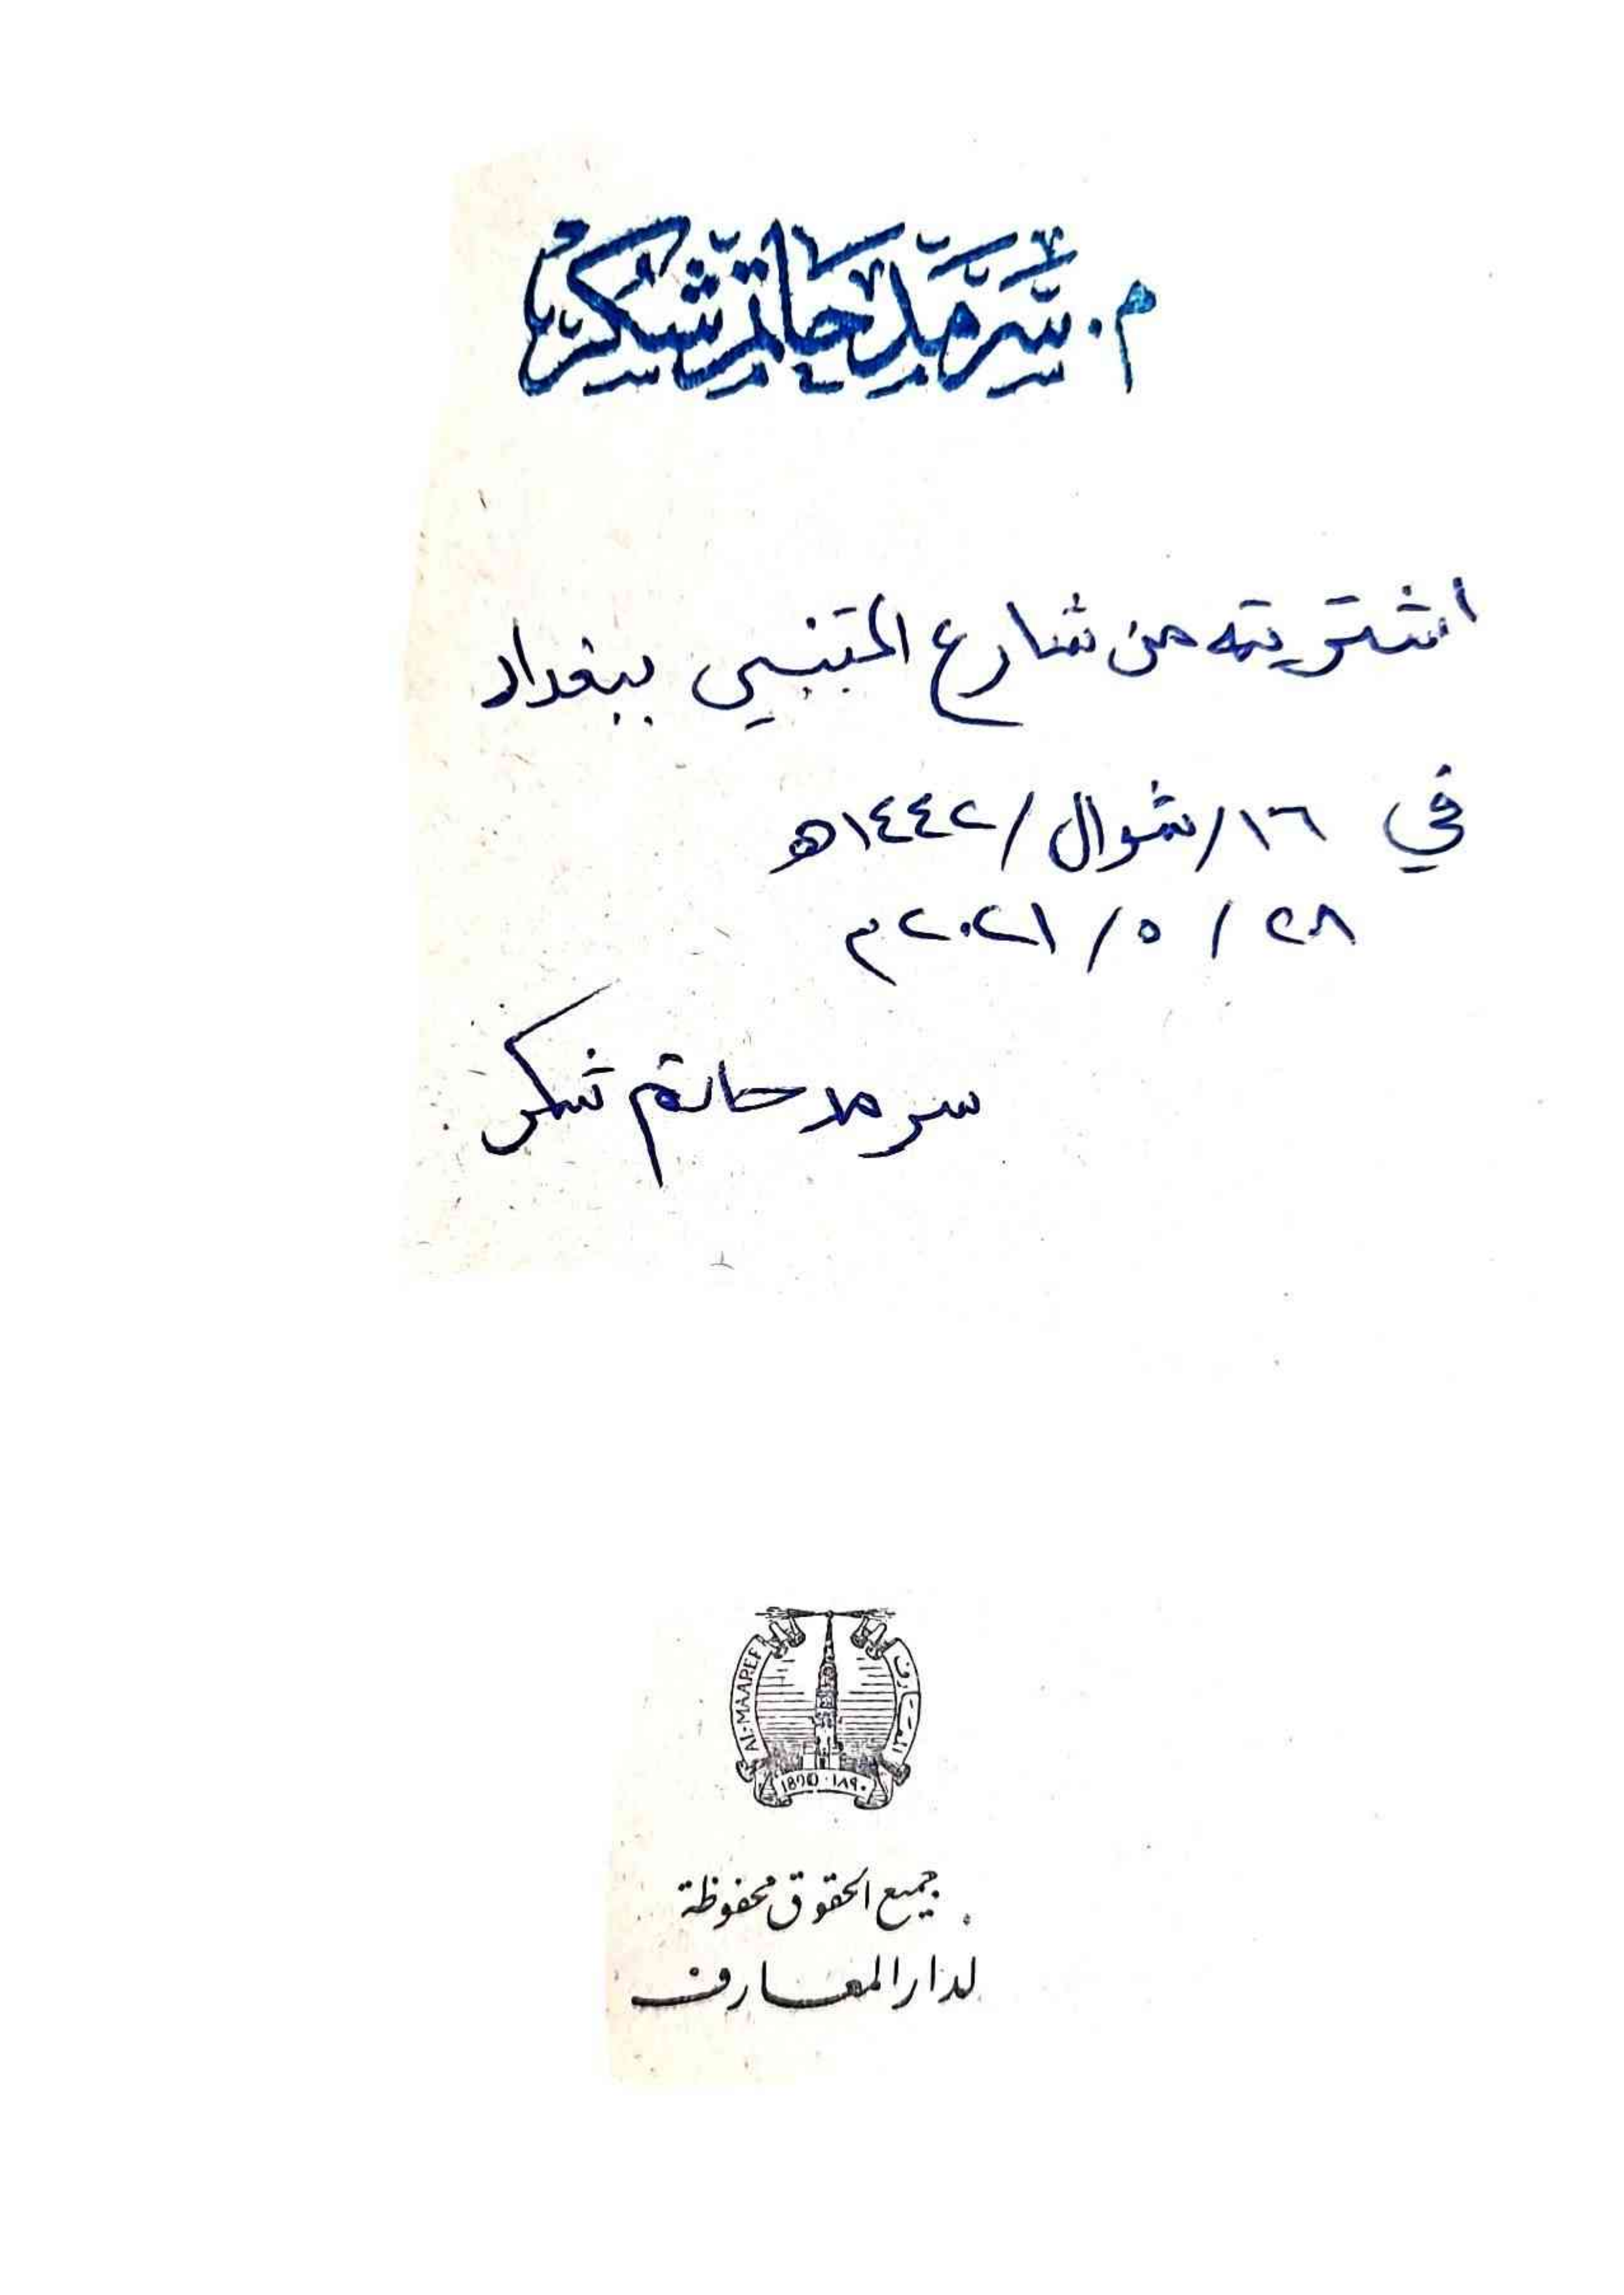 م. سرمد حاتم شكر
اشتريته من شارع المتنبي ببغداد
في ١٦/شوال/١٤٤٢ه
٢٨/٥/٢٠٢١م
سرمد حاتم شكر
AL-MAAREF
المعارف
1890 · ١٨٩٠
جميع الحقوق محفوظة
لدار المعارف